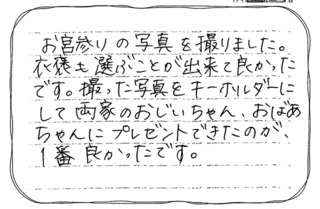 お宮参りの写真を撮りました。
衣装も選ぶことが出来て良かった
です。撮った写真をキーホルダーに
して両家のおじいちゃん、おばあ
ちゃんにプレゼントできたのが、
1番良かったです。